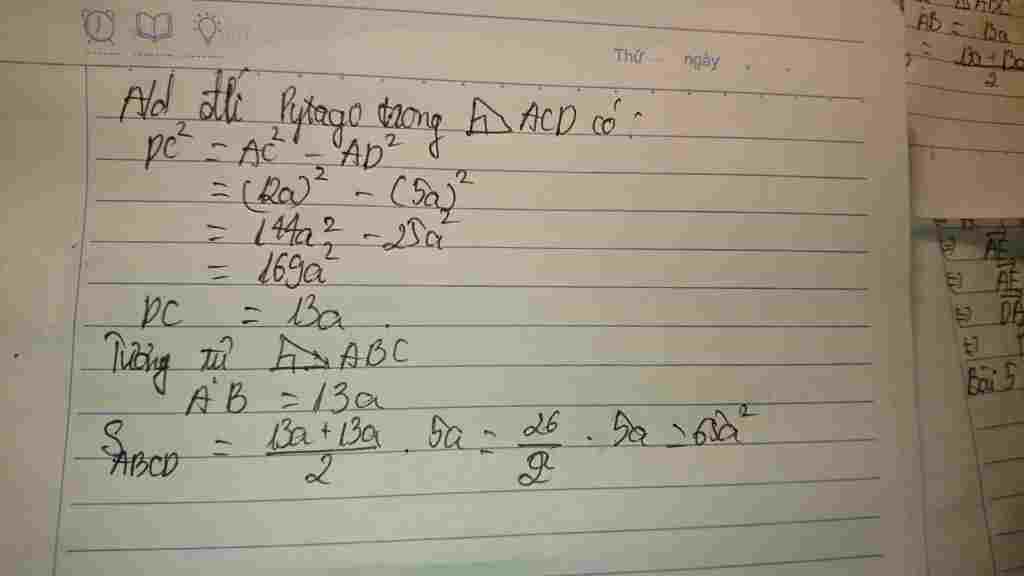 Thứ ... ngày . .
A/d đlí Pytago trong ⊿ ACD có:
DC² = AC² - AD²
= (12a)² - (5a)²
= 144a² - 25a²
= 169a²
DC = 13a.
Tương tự ⊿ ABC
AB = 13a
S ABCD = (13a + 13a)/2 . 5a = 26/2 . 5a = 65a²
ABC
AB = 13a
=
2
=) AE
=) AE
=)
=)
Bài 5